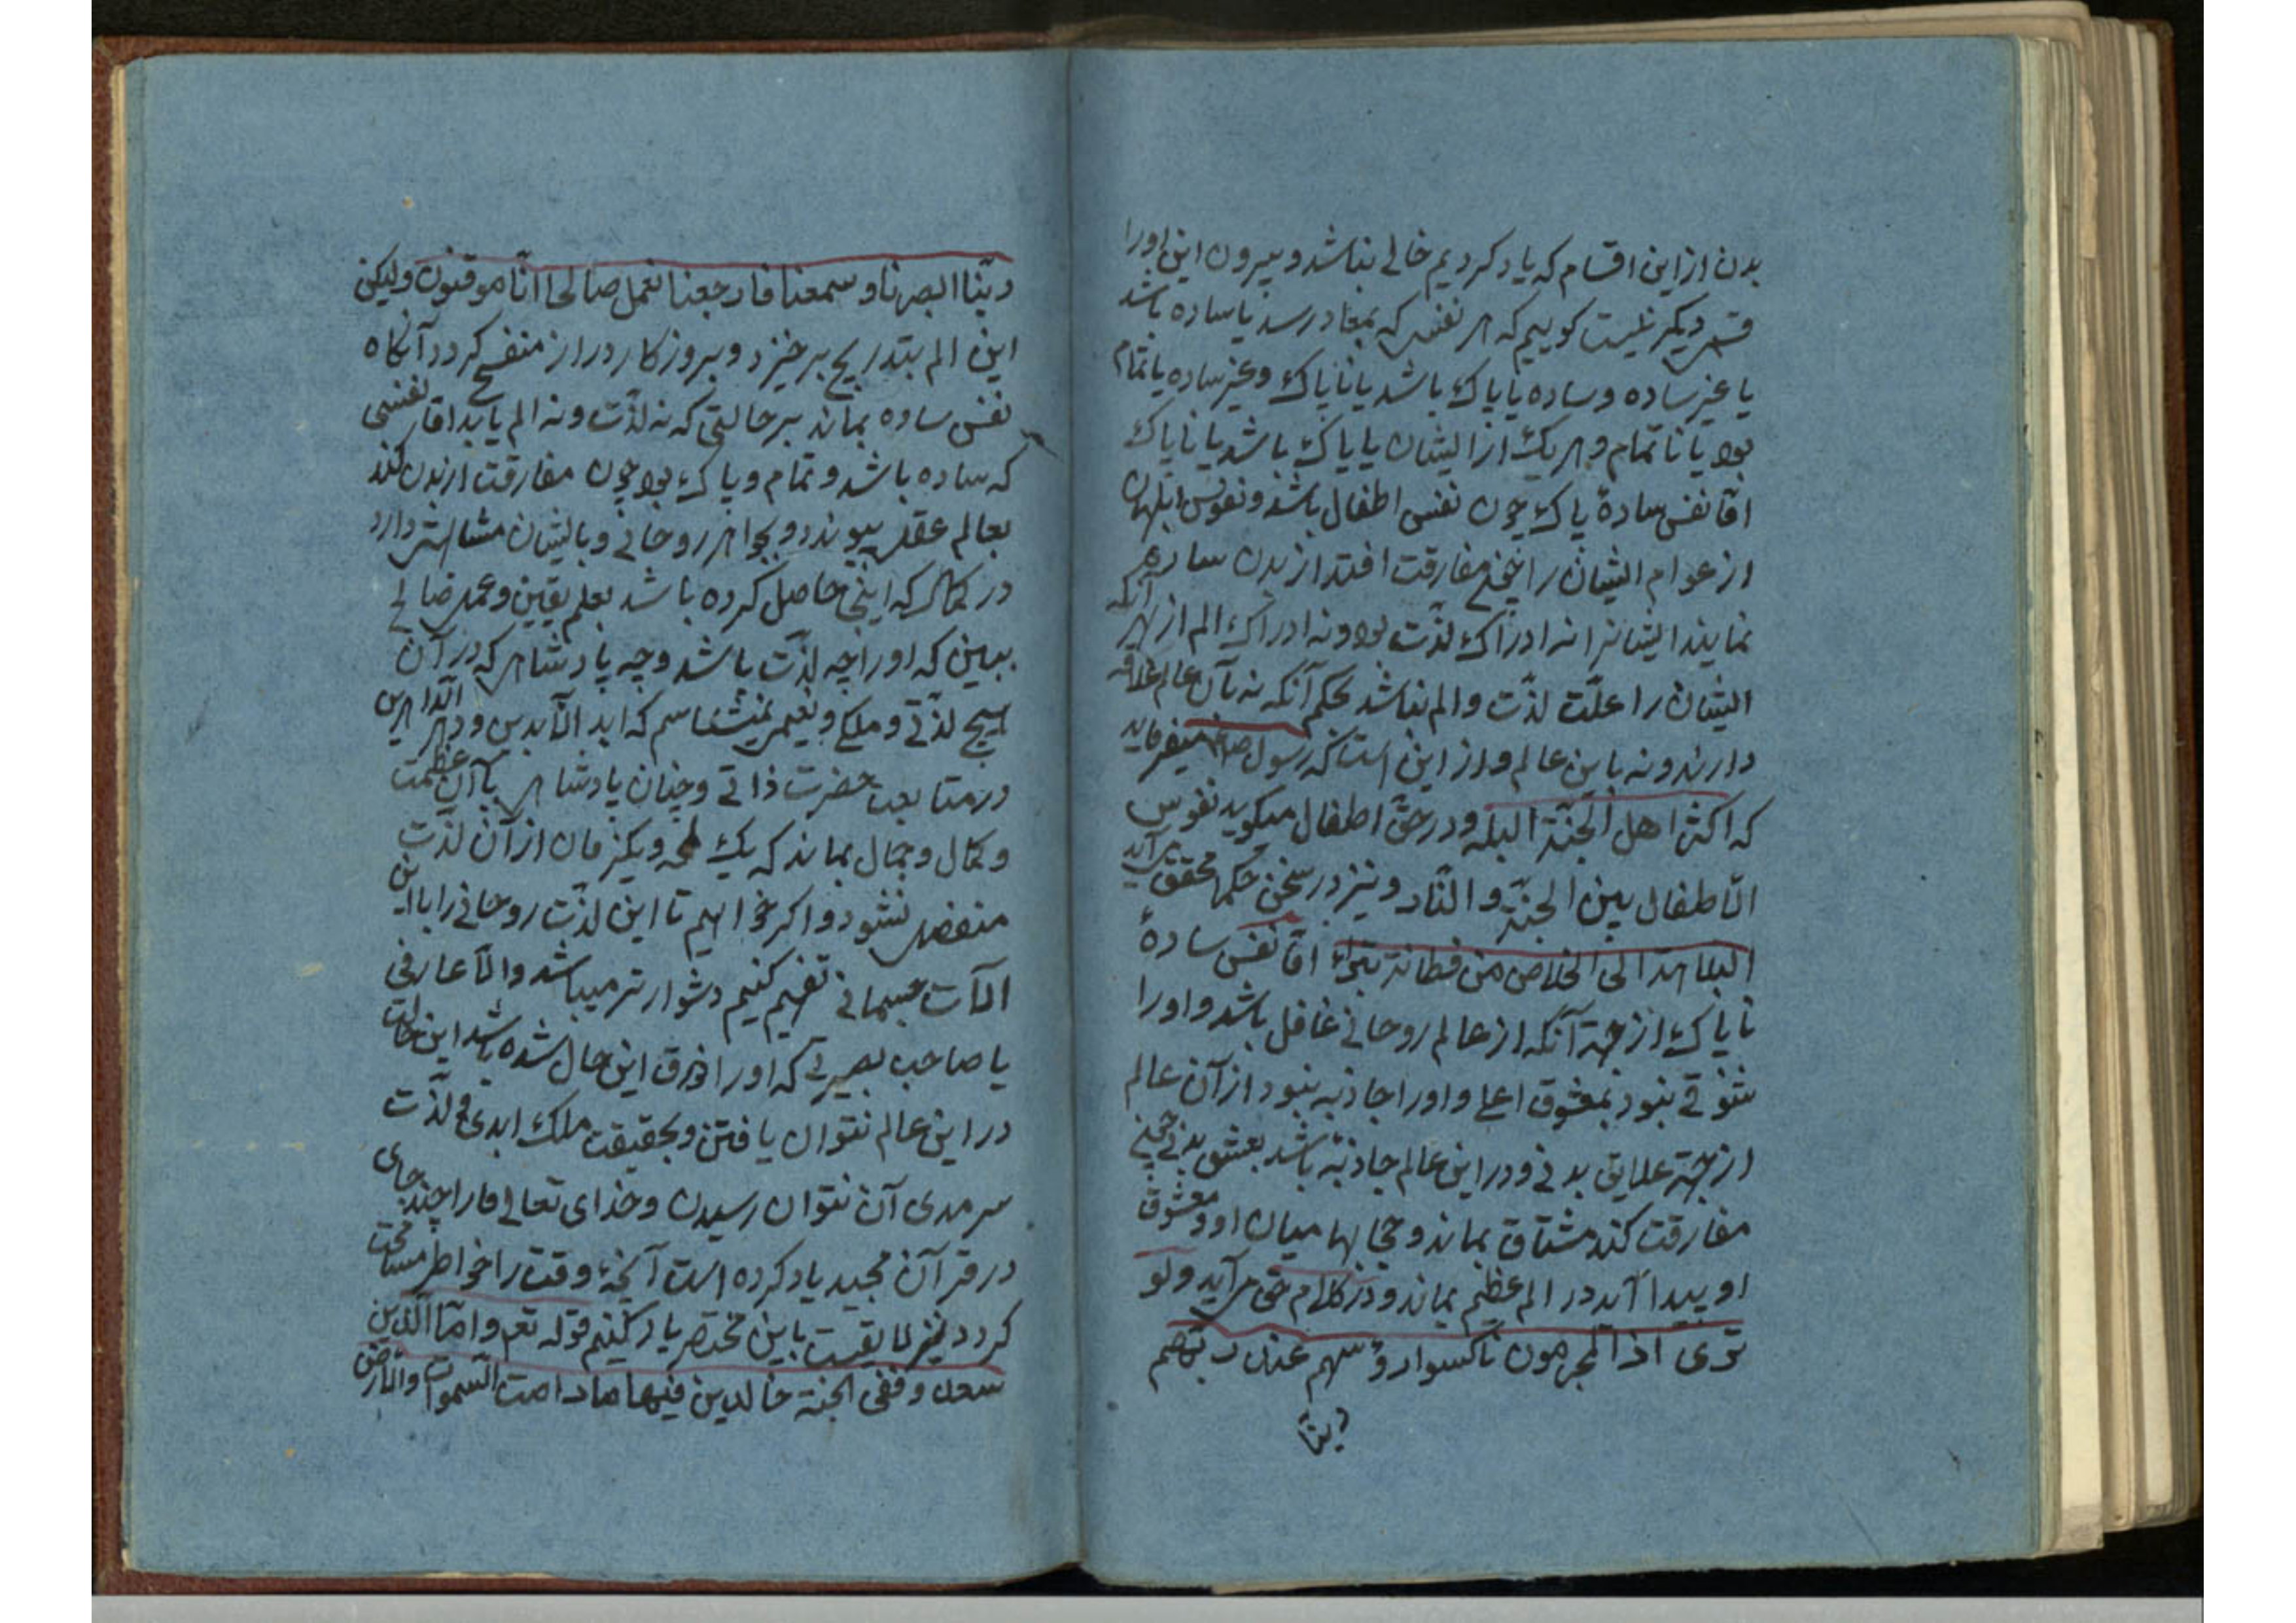 بدن از این اقسام که یاد کردیم خالی نباشد و بیرون این اورا
قسمی دیگر نیست کوییم که هر نفسی که بمعاد رسد یا ساده باشد
یا غیر ساده و ساده یا پاک باشد یا ناپاک و غیر ساده یا تمام
بود یا ناتمام و هر یک از ایشان یا پاک باشد یا ناپاک
امّا نفس سادهٔ پاک چون نفس اطفال باشد و نفوس ابلهان
از عوام ایشان را مفارقت افتد از بدن ساده
نمایند ایشانرا نه ادراک لذّت بود و نه ادراک الم از بهر آنکه
ایشان را علّت لذّت و الم نباشد بحکم آنکه نه بآن عالم علاقه
دارند و نه باین عالم و از این است که رسول میفرماید
که اکثر اهل الجنّة البله و در حق اطفال میکوید نفوس
الاطفال بین الجنّة و النّار و نیز در سخن حکما محقق می آید
البلاهة الی الخلاص من فطانة بتراء امّا نفس سادهٔ
ناپاک از جهة آنکه از عالم روحانی غافل باشد و اورا
شوقی نبود بمعشوق اعلی و اورا جاذبه نبود از آن عالم
از جهة علایق بدنی و در این عالم جاذبه باشد بعشق بدنی
مفارقت کند مشتاق بماند و حجابها میان او و معشوق
او پیدا آید در الم عظیم بماند و در کلام حق می آید ولو
تری اذ المجرمون ناکسوا رؤسهم عند ربهم
ربنا
ربّنا ابصرنا و سمعنا فارجعنا نعمل صالحا انّا موقنون ولیکن
این الم بتدریج برخیزد و بروزکار دراز منفسخ کردد آنکاه
نفس ساده بماند بر حالتی که نه لذّت و نه الم یابد امّا نفسی
که ساده باشد و تمام و پاک بود چون مفارقت از بدن کند
بعالم عقل پیوندد و بجواهر روحانی و بایشان مشابهتی دارد
در کمالی که اینجا حاصل کرده باشد بعلم یقین و عمل صالح
ببین که اورا چه لذّت باشد و چه پادشاهی که در آن
هیچ لذّتی و ملکی و نعیمی نمیشناسم که ابد الآبدین و دهر الدّاهرین
در متابعت حضرت ذاتی و چنان پادشاهی بآن عظمت
و کمال و جمال بماند که یک لمحه و یکزمان از آن لذّت
منفصل نشود و اکر خواهیم تا این لذّت روحانی را با این
آلات جسمانی تفهیم کنیم دشوارتر میباشد والّا عارفی
یا صاحب بصیرتی که اورا ذوق این حال شده باشد این حالت
در این عالم نتوان یافتن و بحقیقت ملک ابدی و لذّت
سرمدی آن نتوان رسیدن و خدای تعالی مارا چند جای
در قرآن مجید یاد کرده است آنچه وقت را خواطر مسامحت
کردد باین مختصر یاد کنیم قوله تعم و امّا الّذین
سعدوا ففی الجنة خالدین فیها ما دامت السموات والارض